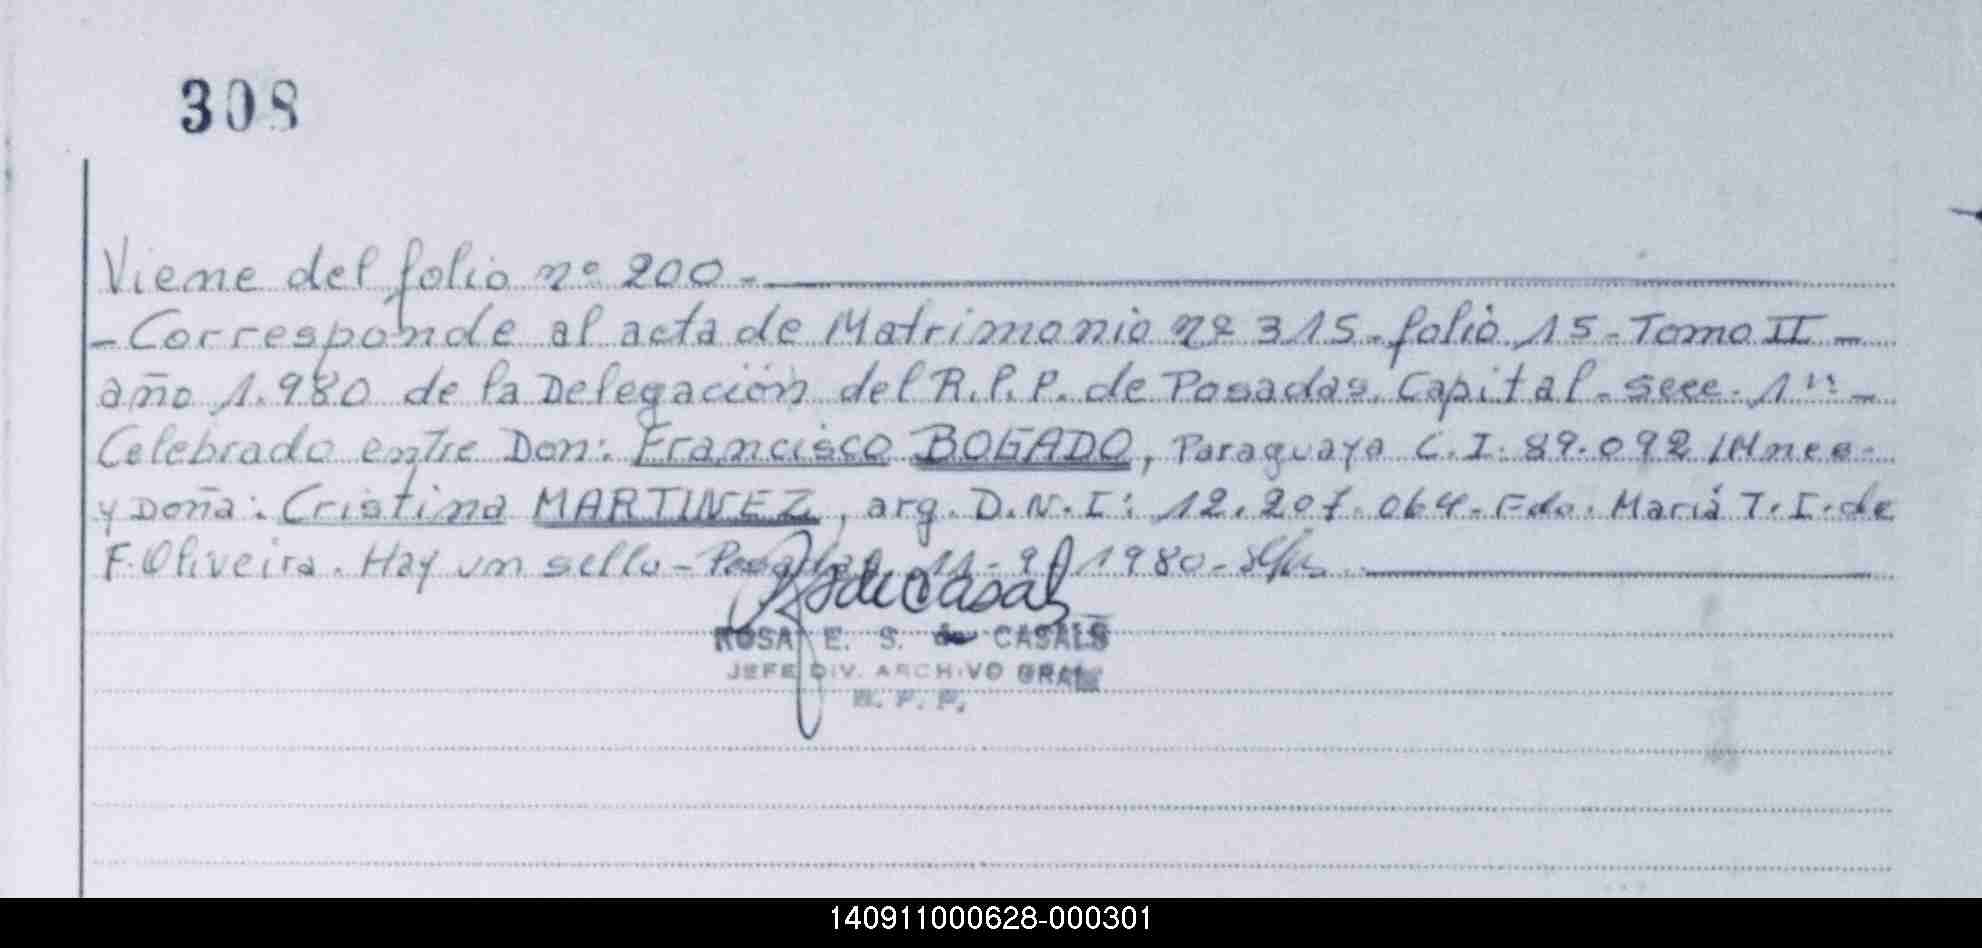 308
Viene del folio nº 200-
- Corresponde al acta de Matrimonio nº 315 - folio 15 - Tomo II -
año 1.980 de la Delegación del R.P.P. de Posadas. Capital - Secc. 1ª -
Celebrado entre Don: Francisco BOGADO, Paraguayo C.I. 89.092 /Mnes-
y Doña: Cristina MARTINEZ, arg. D.N.I: 12.207.064. Fdo. Mariá T. I. de
F. Oliveira. Hay un sello - Posadas 11-9-1980 -
ROSA E. S. de CASALS
JEFE DIV. ARCHIVO GRAL
R. P. P.
140911000628-000301